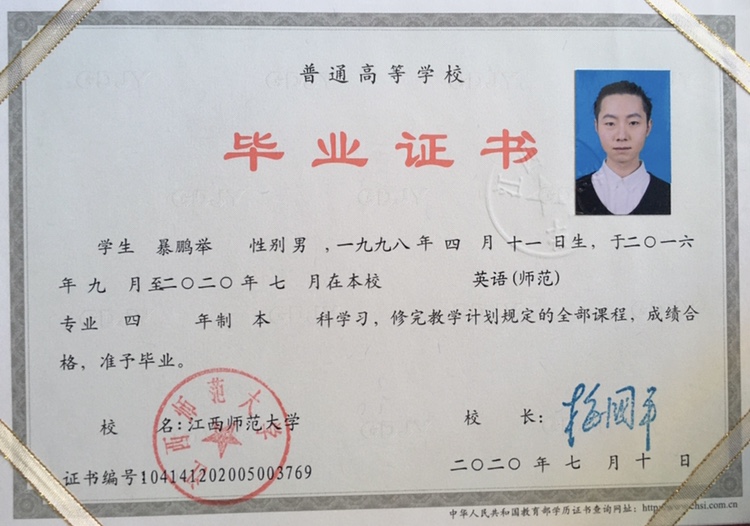 普通高等学校
毕业证书
学生 暴鹏举 性别 男 ,一九九八 年 四 月 十一 日生，于二〇一六
年 九 月至二〇二〇年 七 月在本校 英语(师范)
专业 四 年制 本 科学习，修完教学计划规定的全部课程，成绩合
格，准予毕业。
江西师范大学
校 名:江西师范大学
校 长: 梅国平
证书编号:104141202005003769
二〇二〇 年 七 月 十 日
中华人民共和国教育部学历证书查询网址: http://www.chsi.com.cn